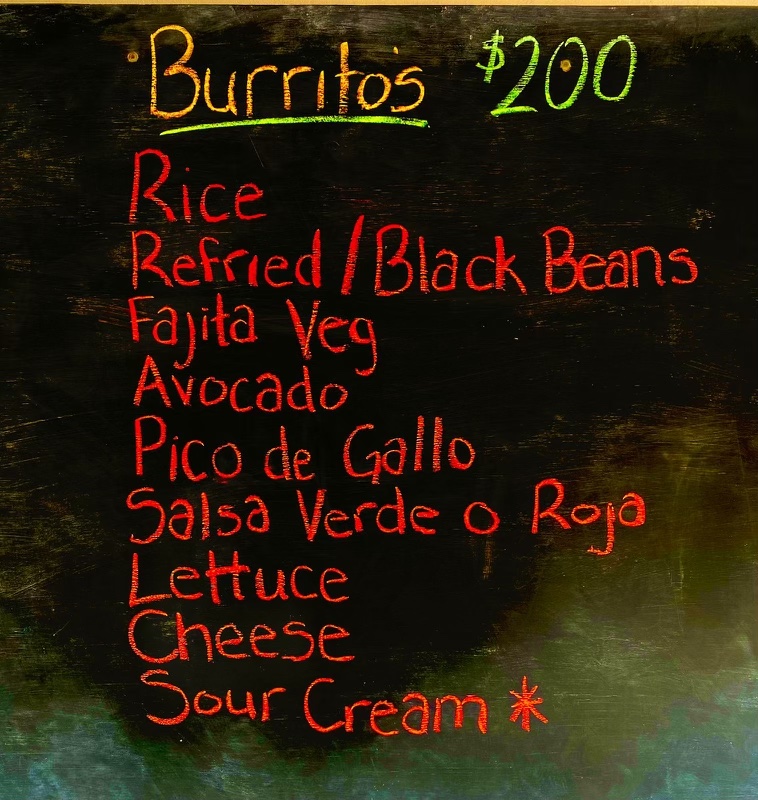 Burrito's $200
Rice
Refried / Black Beans
Fajita Veg
Avocado
Pico de Gallo
Salsa Verde o Roja
Lettuce
Cheese
Sour Cream *